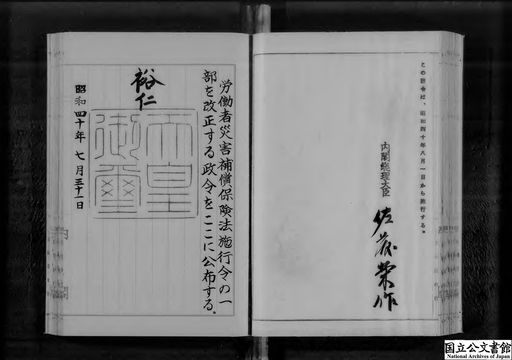 この政令は、昭和四十年八月一日から施行する。
内閣総理大臣
佐藤榮作
労働者災害補償保険法施行令の一
部を改正する政令をここに公布する。
裕仁
天皇
御璽
昭和四十年七月三十一日
国立公文書館
National Archives of Japan